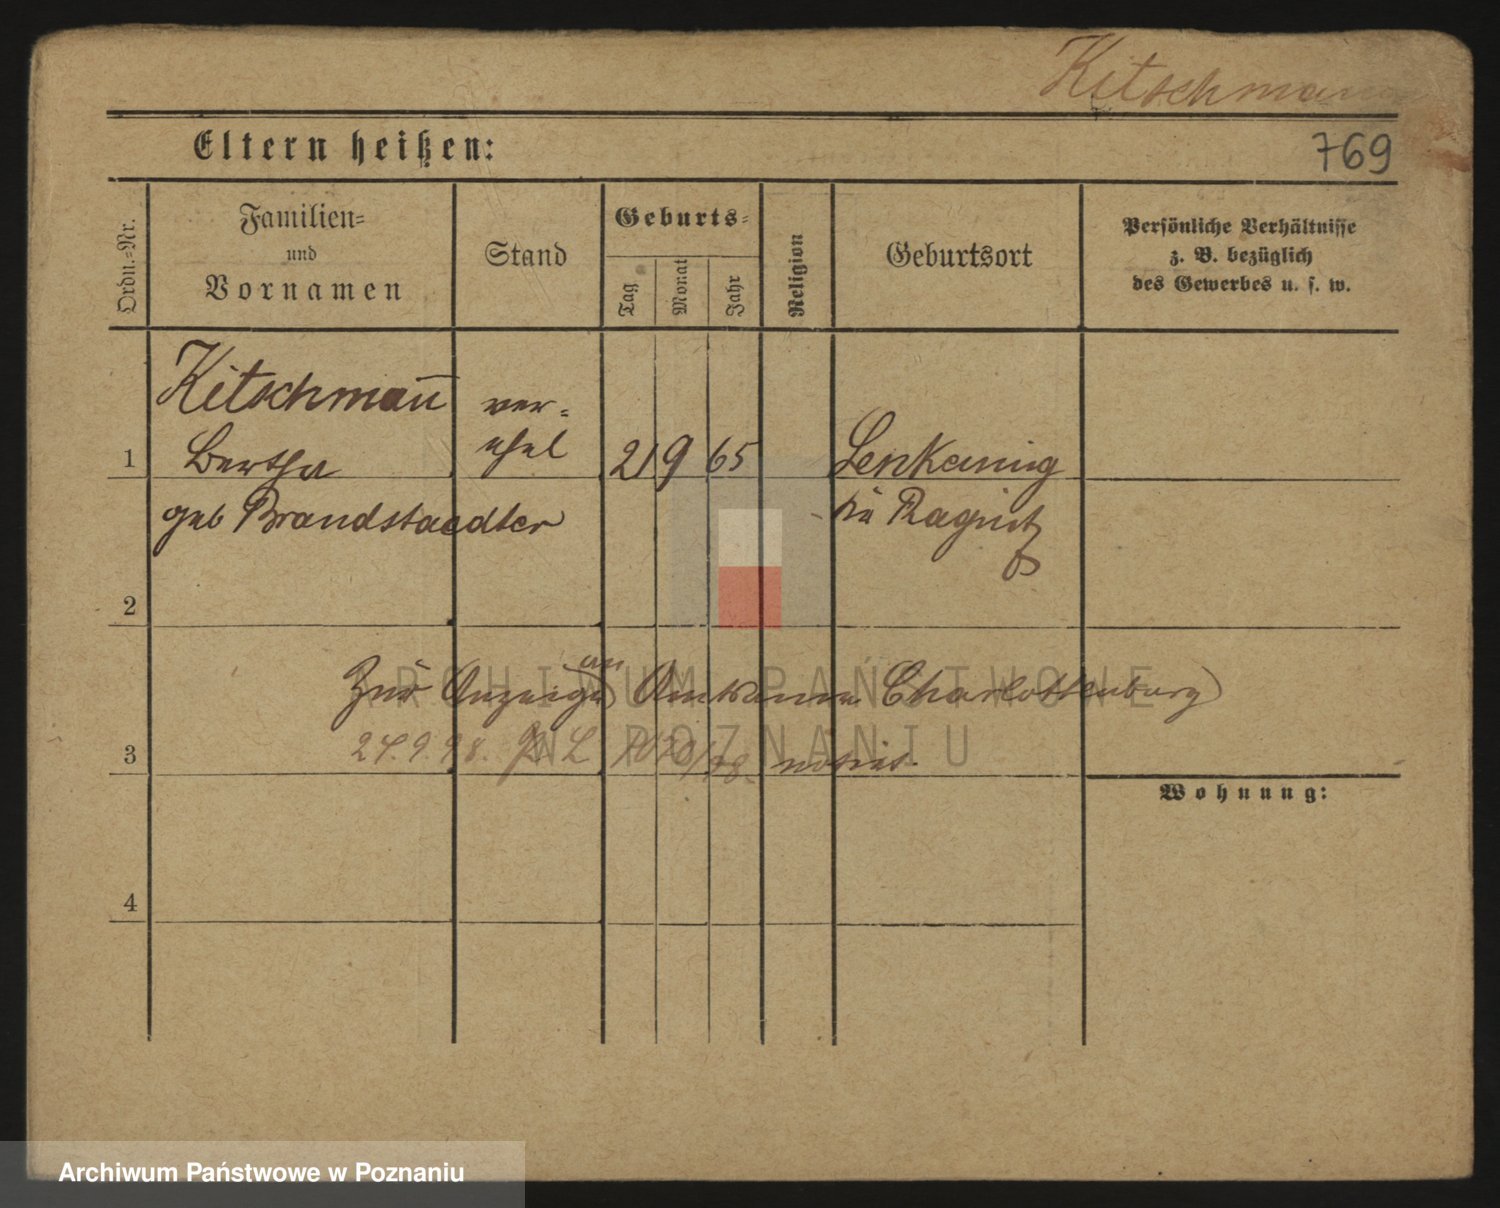 Kitschmann
Eltern heißen:
769
Ordn.-Nr.
Familien-
und
Vornamen
Stand
Geburts-
Tag
Monat
Jahr
Religion
Geburtsort
Persönliche Verhältnisse
z. B. bezüglich
des Gewerbes u. s. w.
Kitschman̄
ver-
1
Bertha
ehel
21 9 65
Lenkaning
geb Brandstaedter
Kr Ragnit
2
ARCHIWUM PAŃSTWOWE
W POZNANIU
an
Zur Anzeige Charlottenburg
3
24.9.98. notirt.
Wohnung:
4
Archiwum Państwowe w Poznaniu